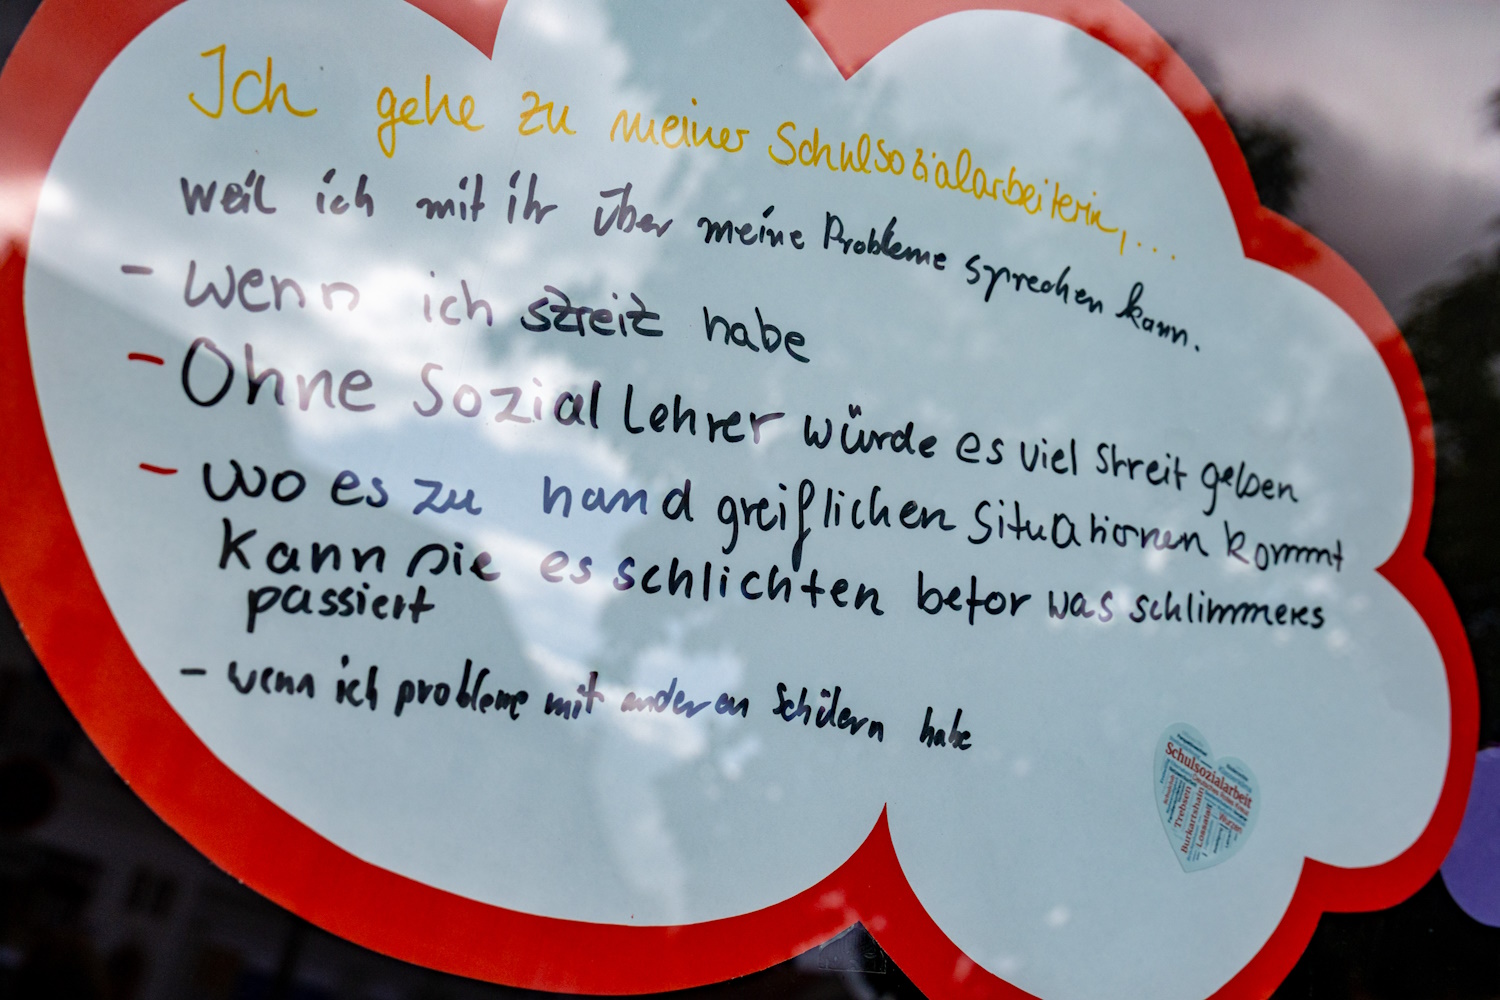 Ich gehe zu meiner Schulsozialarbeiterin,...
weil ich mit ihr über meine Probleme sprechen kann.
- wenn ich streit habe
- Ohne Sozial Lehrer würde es viel Streit geben
- wo es zu hand greiflichen Situationen kommt
kann sie es schlichten befor was schlimmeres
passiert
- wenn ich probleme mit anderen Schülern habe
Schulsozialarbeit
Trebsen
Burkartshain
Lossatal
Wurzen